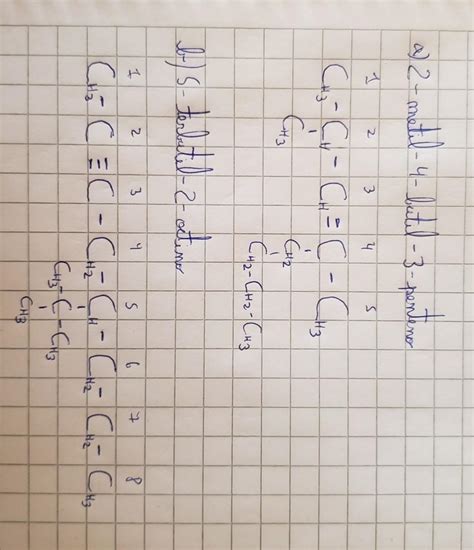 a) 2-metil-4-butil-3-penteno
1 2 3 4 5
CH3 - CH - CH = C - CH3
CH3 CH2
CH2-CH2-CH3
b) 5-terbutil-2-octino
1 2 3 4 5 6 7 8
CH3 - C ≡ C - CH2 - CH - CH2 - CH2 - CH3
CH3-C-CH3
CH3